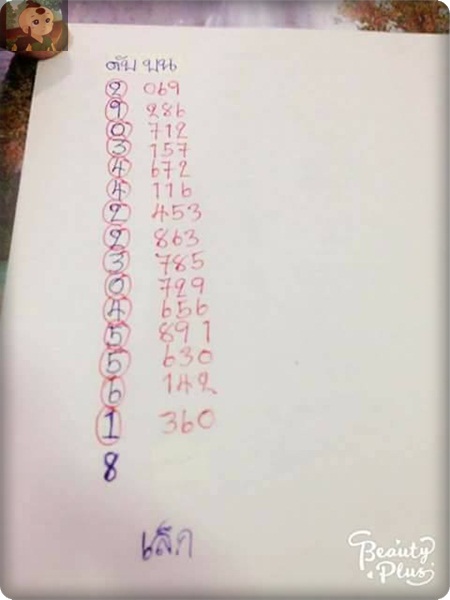 ดับ บน
2 069
9 286
0 712
3 157
4 672
4 116
2 453
2 863
3 785
0 729
4 656
5 891
5 630
6 142
1 360
8
เล็ก
Beauty
Plus